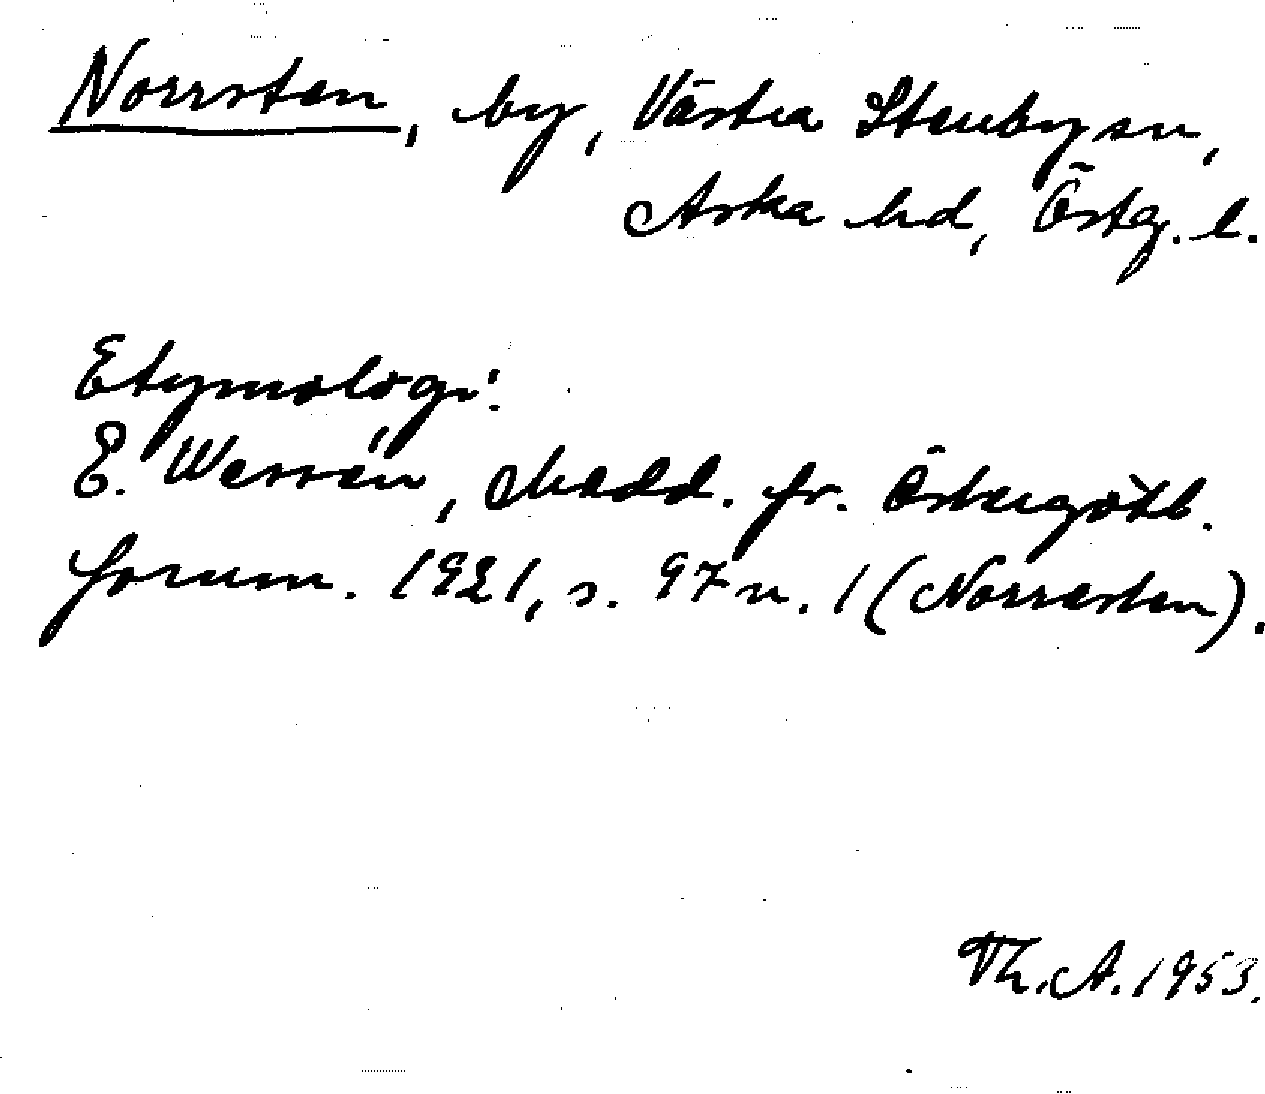 Norrsten, by, Västra Stenby sn,
Aska hd, Östg. l.
Etymologi:
E. Wessén, Medd. fr. Östergötl.
fornm. 1921, s. 97 n. 1 (Norræsten).
Th. A. 1953.